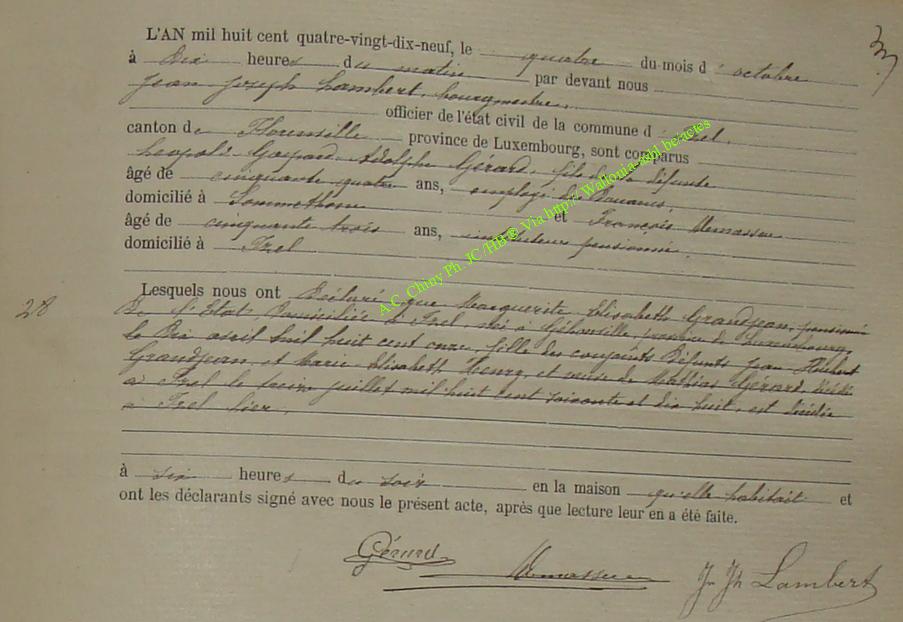 L'AN mil huit cent quatre-vingt-dix-neuf, le quatre du mois d' octobre
à Dix heures du matin par devant nous
Jean Joseph Lambert, bourgmestre,
officier de l'état civil de la commune d' Izel,
canton de Florenville province de Luxembourg, sont comparus
Léopold Gaspard Adolphe Gérard, fils de la défunte
âgé de cinquante quatre ans, employé des Douanes,
domicilié à Sommethonne et François
âgé de cinquante trois ans, instituteur pensionné
domicilié à Izel
Lesquels nous ont Déclaré que Marguerite Elisabeth Grandjean, pensionné
28
De l'Etat Domiciliée à Izel, née à province de Luxembourg,
le Dix avril mil huit cent onze, fille des conjoints Défunts Jean Hubert
Grandjean, et Marie Elisabeth Henry, et veuve de Mathias Gérard, décédé
à Izel le juillet mil huit cent soixante et dix huit, est décédée
à Izel hier,
à six heures du soir en la maison qu'elle habitait et
ont les déclarants signé avec nous le présent acte, après que lecture leur en a été faite.
Gérard
Jn Jh Lambert
A.C. Chiny Ph. JC/HB ® Via http://Wallonia-asbl.be:actes